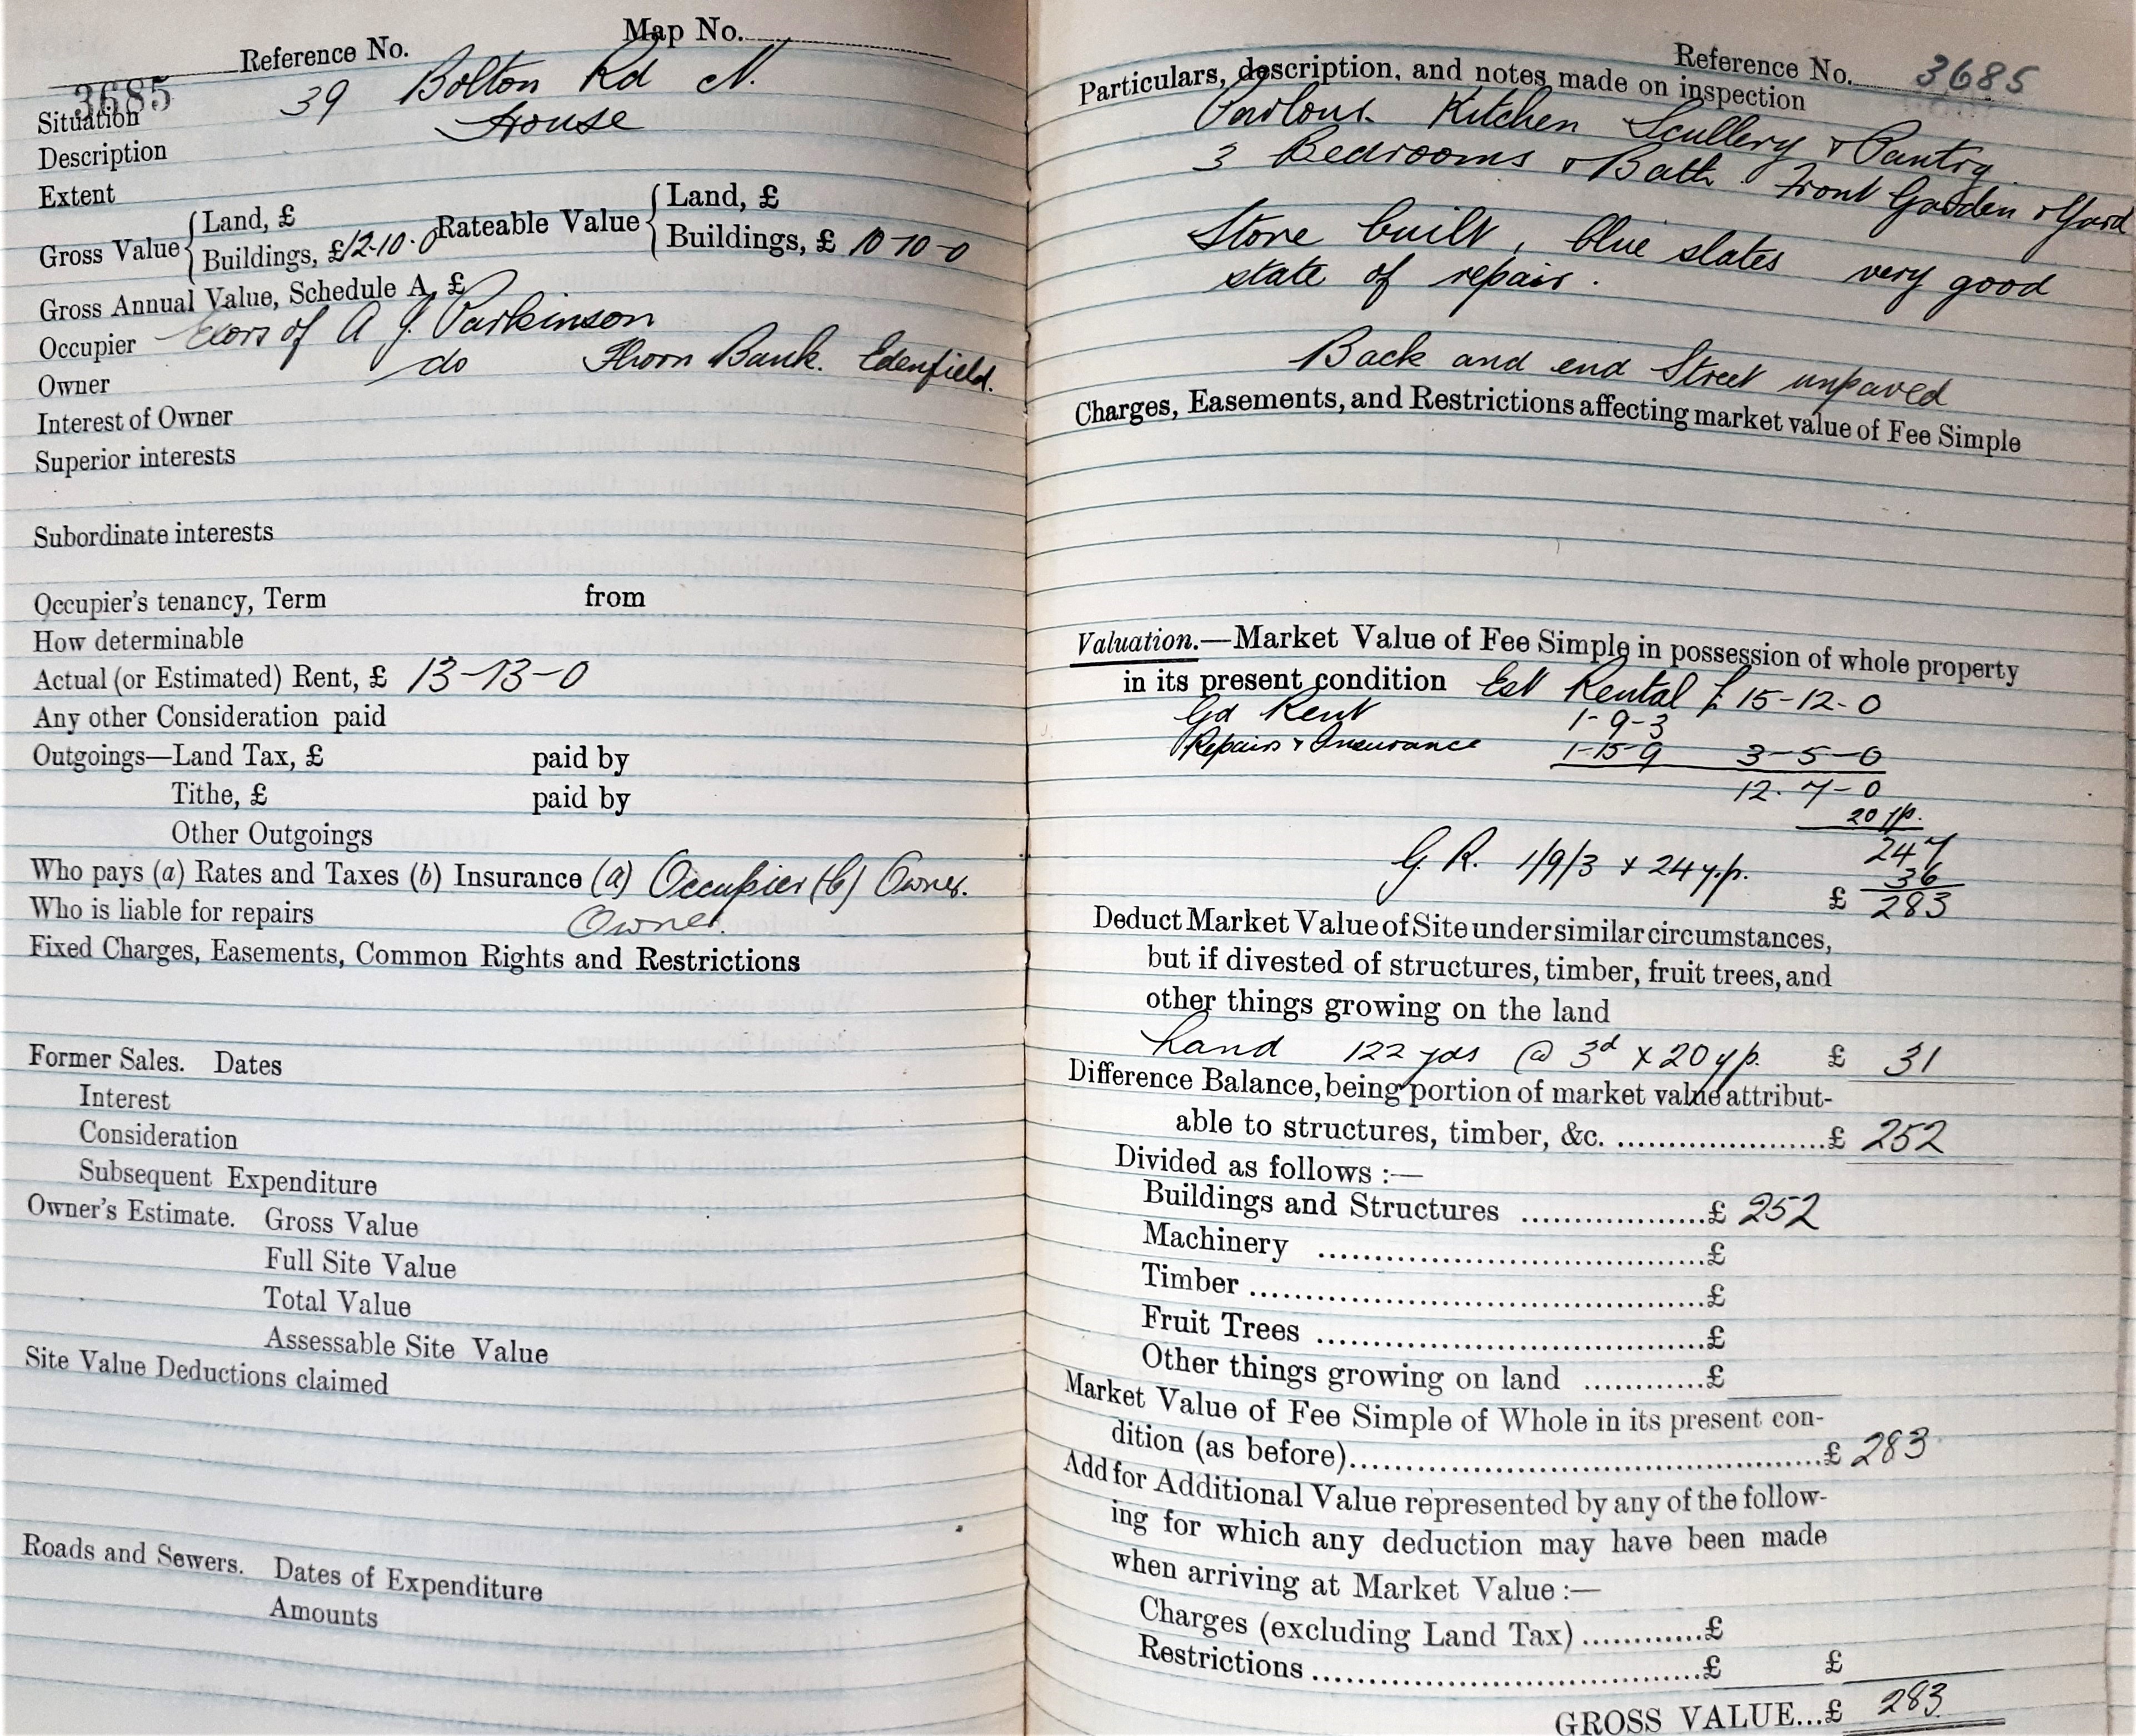 Reference No. Map No.
3685
Situation 39 Bolton Rd N.
Description House
Extent
Gross Value { Land, £ Rateable Value { Land, £
Buildings, £12-10-0 Buildings, £ 10-10-0
Gross Annual Value, Schedule A, £
Occupier Exors of A J. Parkinson
Owner do Thorn Bank. Edenfield.
Interest of Owner
Superior interests
Subordinate interests
Occupier's tenancy, Term from
How determinable
Actual (or Estimated) Rent, £ 13-13-0
Any other Consideration paid
Outgoings—Land Tax, £ paid by
Tithe, £ paid by
Other Outgoings
Who pays (a) Rates and Taxes (b) Insurance (a) Occupier (b) Owner.
Who is liable for repairs Owner.
Fixed Charges, Easements, Common Rights and Restrictions
Former Sales. Dates
Interest
Consideration
Subsequent Expenditure
Owner's Estimate. Gross Value
Full Site Value
Total Value
Assessable Site Value
Site Value Deductions claimed
Roads and Sewers. Dates of Expenditure
Amounts
Reference No. 3685
Particulars, description, and notes made on inspection
Parlour Kitchen Scullery & Pantry
3 Bedrooms & Bath. Front Garden & Yard
Stone built, blue slates very good
state of repair.
Back and end Street unpaved
Charges, Easements, and Restrictions affecting market value of Fee Simple
Valuation.—Market Value of Fee Simple in possession of whole property
in its present condition Est Rental £ 15-12-0
Gd Rent 1-9-3
Repairs & Insurance 1-15-9 3-5-0
12-7-0
20 yp.
247
G. R. 1/9/3 x 24 y.p. 36
£ 283
Deduct Market Value of Site under similar circumstances,
but if divested of structures, timber, fruit trees, and
other things growing on the land
Land 122 yds @ 3d x 20 yp. £ 31
Difference Balance, being portion of market value attribut-
able to structures, timber, &c. ....................£ 252
Divided as follows :—
Buildings and Structures ..................£ 252
Machinery ......................................£
Timber.............................................£
Fruit Trees ......................................£
Other things growing on land ............£
Market Value of Fee Simple of Whole in its present con-
dition (as before)...............................................£ 283
Add for Additional Value represented by any of the follow-
ing for which any deduction may have been made
when arriving at Market Value :—
Charges (excluding Land Tax) ............£
Restrictions ......................................£ £
GROSS VALUE...£ 283